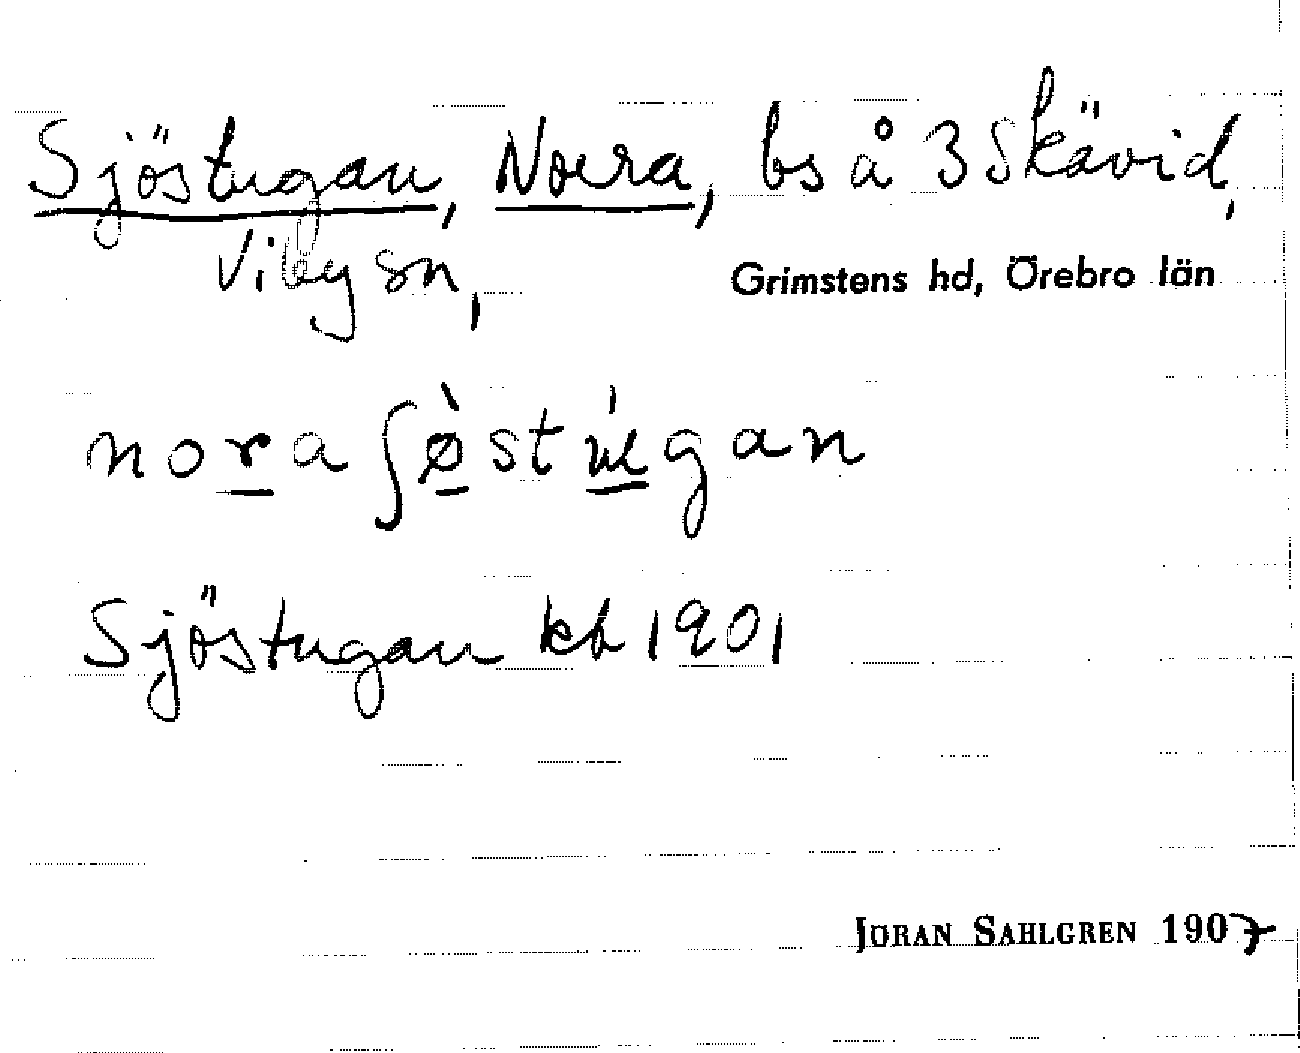 Sjöstugan, Norra, bs å 3 Skävid,
Viby sn,
Grimstens hd, Örebro län
nora ʃø̀stu̍gan
Sjöstugan kb 1901
JÖRAN SAHLGREN 1907